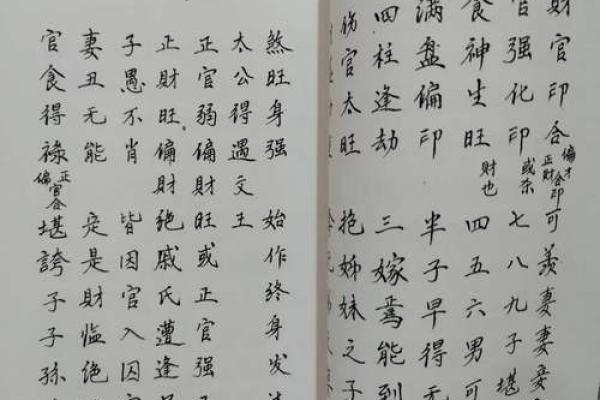 財官印合 偏才正財合印 可羨妻妻妾
官强化印 或杀 七八九子堪
食神生旺 財也 四五六男可
满盘偏印 半子早得无
四柱逢劫 三嫁焉能到
伤官太旺 抱姊妹之子
煞旺身强 始作终身发
太公得遇文王
正官弱偏財旺或正官强
正財旺偏財绝戚氏遭逢
子愚不肖 皆因官入囚宫
妻丑无能 定是財临绝
官食得禄 正偏官合 堪誇子子孙